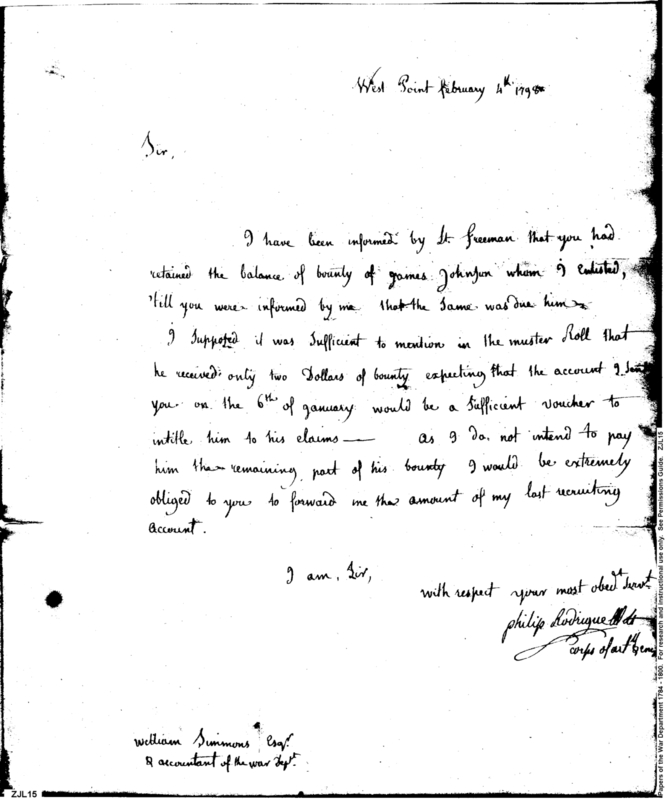 West Point february 4th 1798
Sir,
I have been informed by Lt. Freeman that you had
retained the balance of bounty of games Johnson whom I enlisted,
'till you were informed by me that the same was due him
I supposed it was sufficient to mention in the muster Roll that
he received only two Dollars of bounty expecting that the account I sent
you on the 6th of ganuary would be a sufficient voucher to
intitle him to his claims — as I do not intend to pay
him the remaining part of his bounty I would be extremely
obliged to you to forward me the amount of my last recruiting
account.
I am, Sir,
with respect your most obedt servt.
philip Rodrigue Lt
Corps of artt &
William Simmons Esqr.
accountant of the war Dept.
ZJL15
Papers of the War Department 1784 - 1800. For research and instructional use only. See Permissions Guide. ZJL15